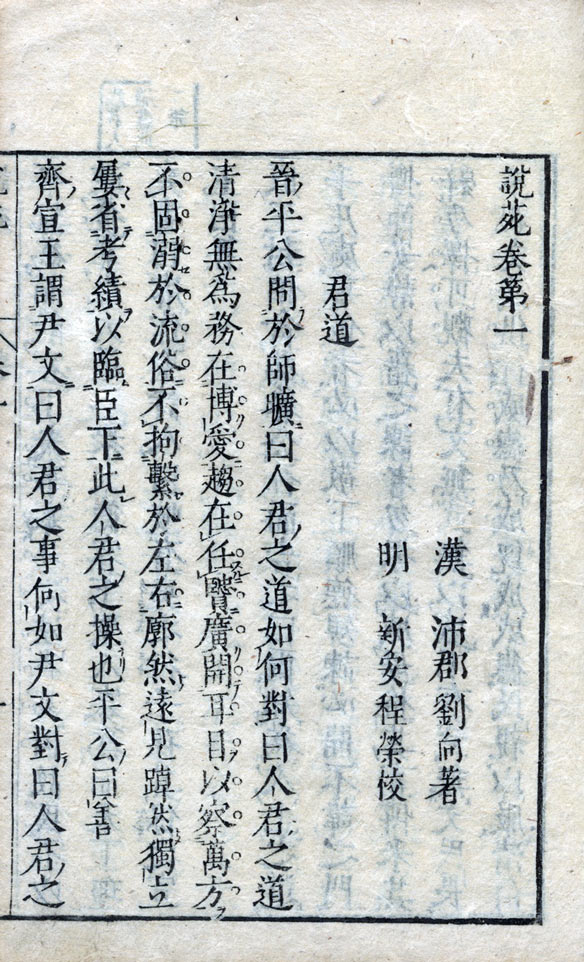 說苑卷第一
漢 沛郡劉向著
明 新安程榮校
君道
晉平公問於師曠曰人君之道如何對曰人君之道
清淨無爲務在博愛趨在任賢廣開耳目以察萬方
不固溺於流俗不拘繫於左右廓然遠見踔然獨立
屢省考績以臨臣下此人君之操也平公曰善
齊宣王謂尹文曰人君之事何如尹文對曰人君之